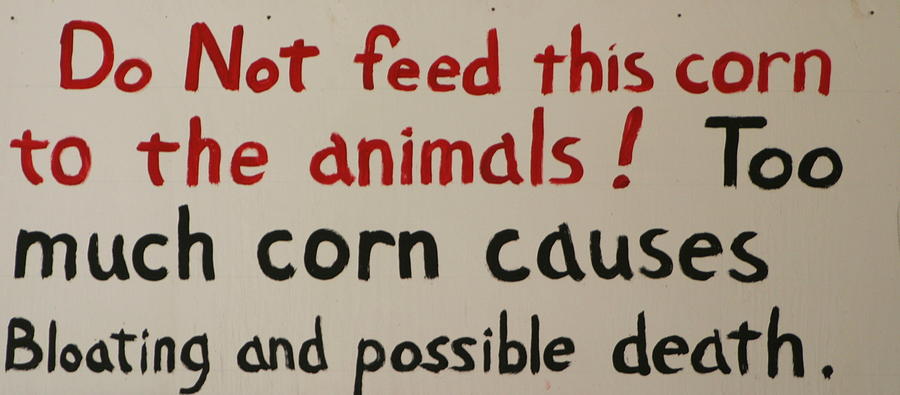 Do Not feed this corn
to the animals! Too
much corn causes
Bloating and possible death.